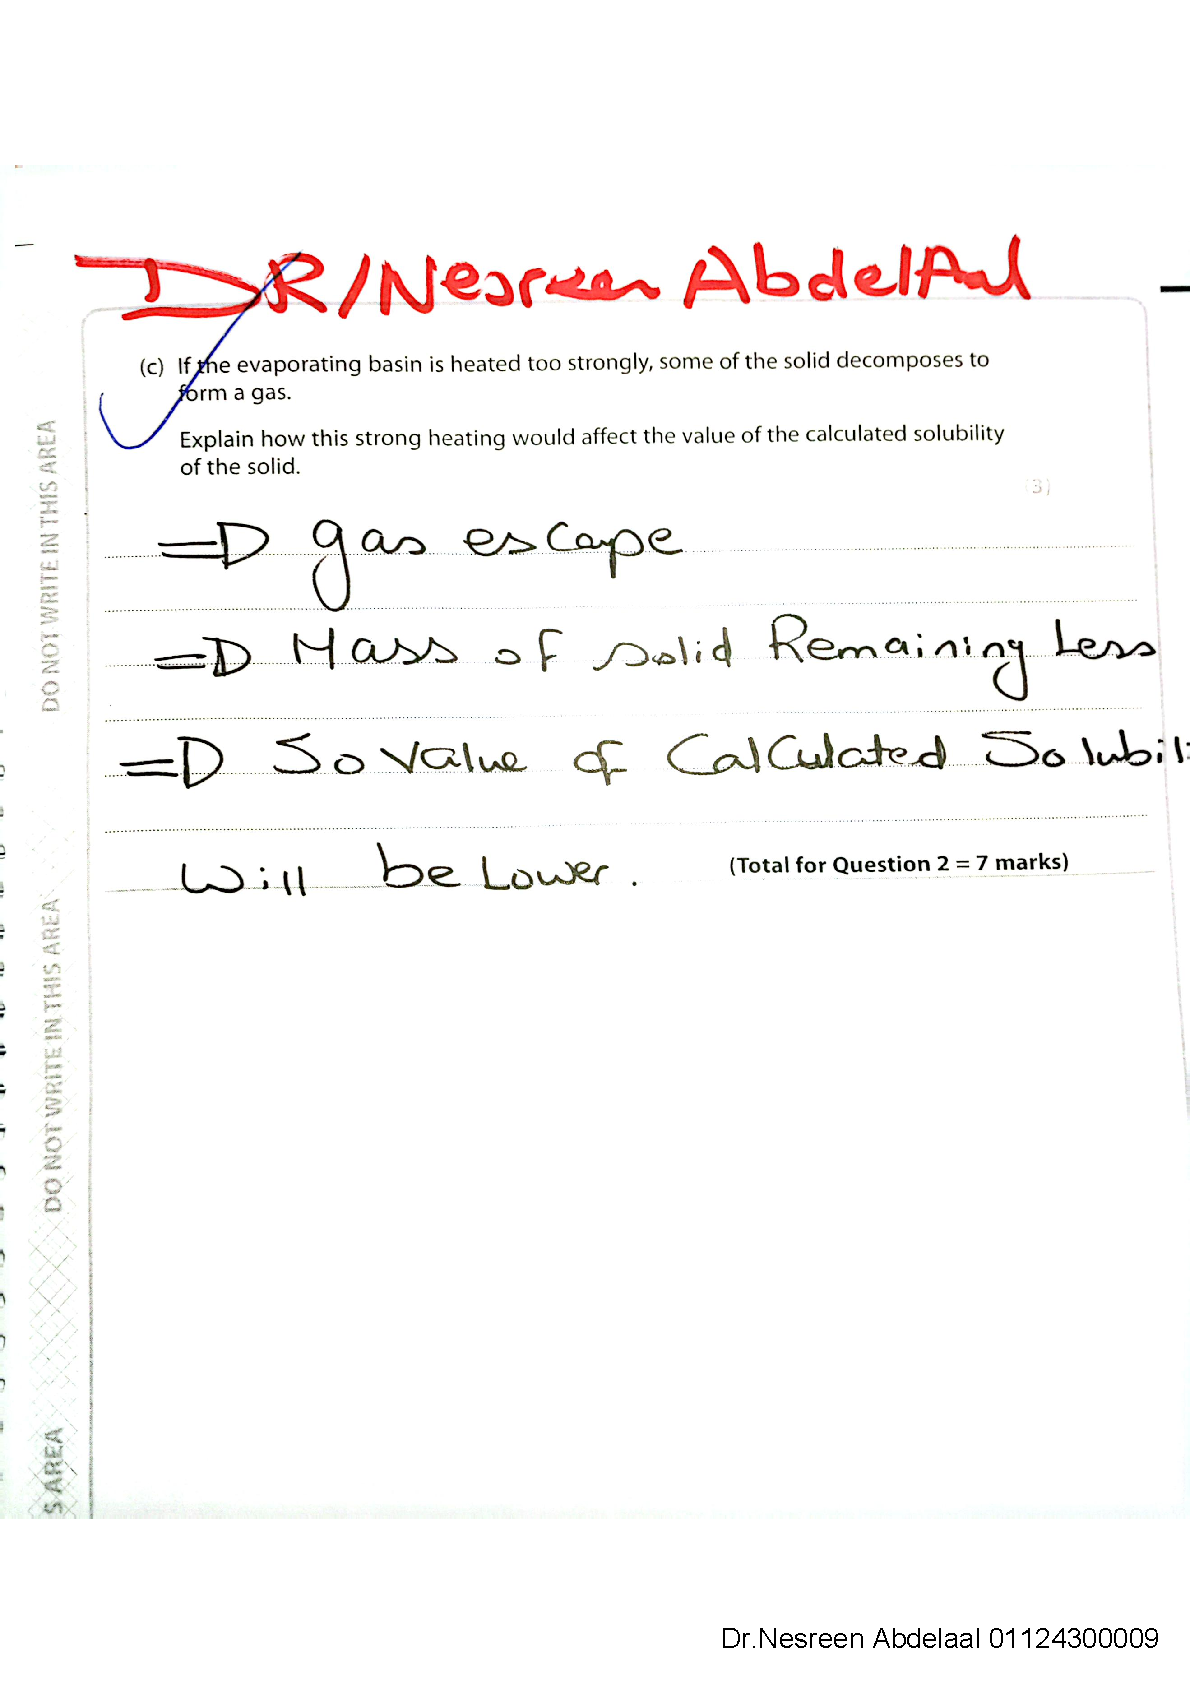 DR/Nesreen AbdelAal
(c) If the evaporating basin is heated too strongly, some of the solid decomposes to
form a gas.
Explain how this strong heating would affect the value of the calculated solubility
of the solid.
(3)
=D gas escape
=D Mass of solid Remaining Less
=D So value of Calculated Solubili
will be Lower.
(Total for Question 2 = 7 marks)
DO NOT WRITE IN THIS AREA
DO NOT WRITE IN THIS AREA
S AREA
Dr.Nesreen Abdelaal 01124300009